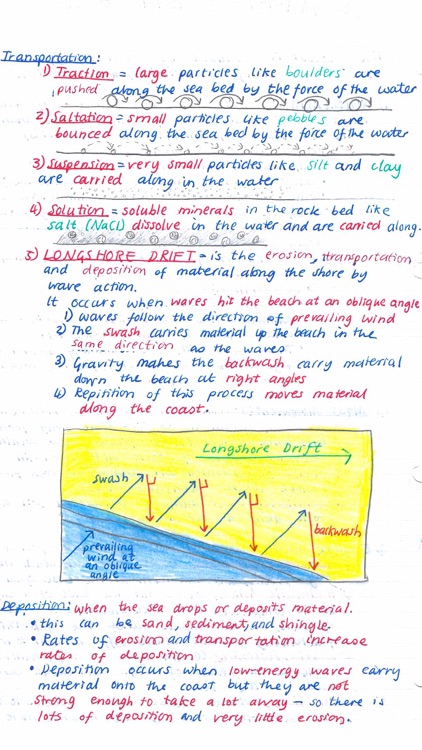 Transportation:
1) Traction = large particles like boulders are
pushed along the sea bed by the force of the water
2) Saltation = small particles like pebbles are
bounced along the sea bed by the force of the water
3) Suspension = very small particles like silt and clay
are carried along in the water
4) Solution = soluble minerals in the rock bed like
salt (NaCl) dissolve in the water and are carried along.
5) LONGSHORE DRIFT = is the erosion, transportation
and deposition of material along the shore by
wave action.
It occurs when waves hit the beach at an oblique angle
1) waves follow the direction of prevailing wind
2) The swash carries material up the beach in the
same direction as the waves
3) Gravity makes the backwash carry material
down the beach at right angles
4) Repitition of this process moves material
along the coast.
Longshore Drift
swash
backwash
prevailing
wind at
an oblique
angle
Deposition: when the sea drops or deposits material.
• this can be sand, sediment, and shingle.
• Rates of erosion and transportation increase
rates of deposition
• Deposition occurs when low-energy waves carry
material onto the coast but they are not
strong enough to take a lot away - so there is
lots of deposition and very little erosion.